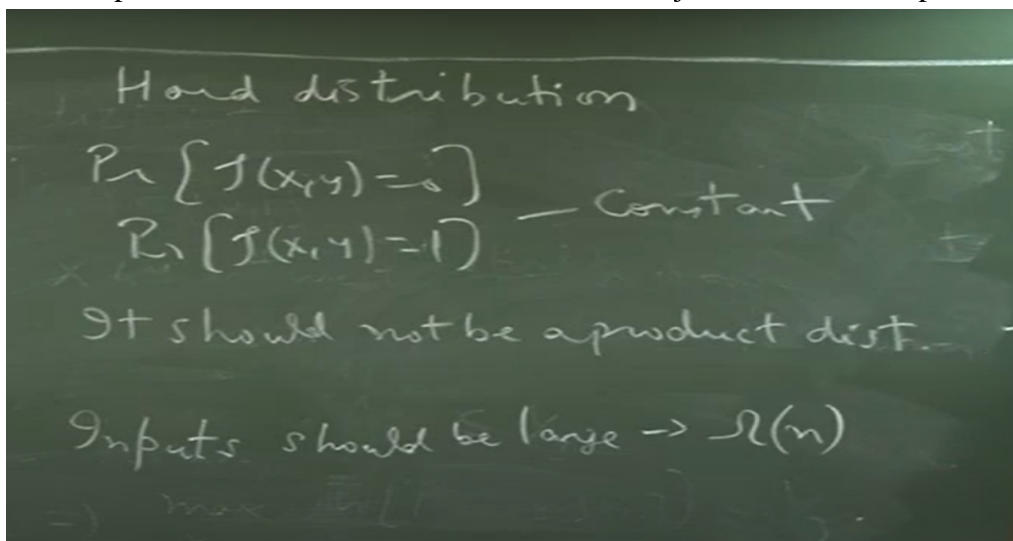 Hard distribution
Pr [f(x,y)=0]
Pr [f(x,y)=1] — Constant
It should not be a product dist.
Inputs should be large → Ω(n)